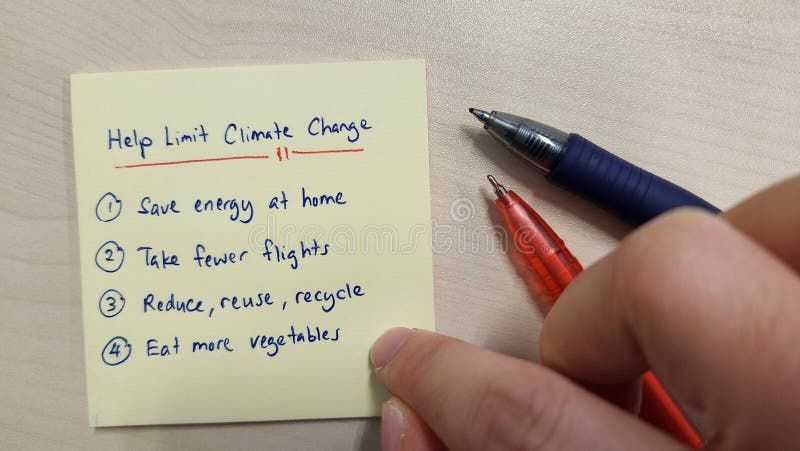 Help Limit Climate Change
1 Save energy at home
2 Take fewer flights
3 Reduce, reuse, recycle
4 Eat more vegetables
dreamstime